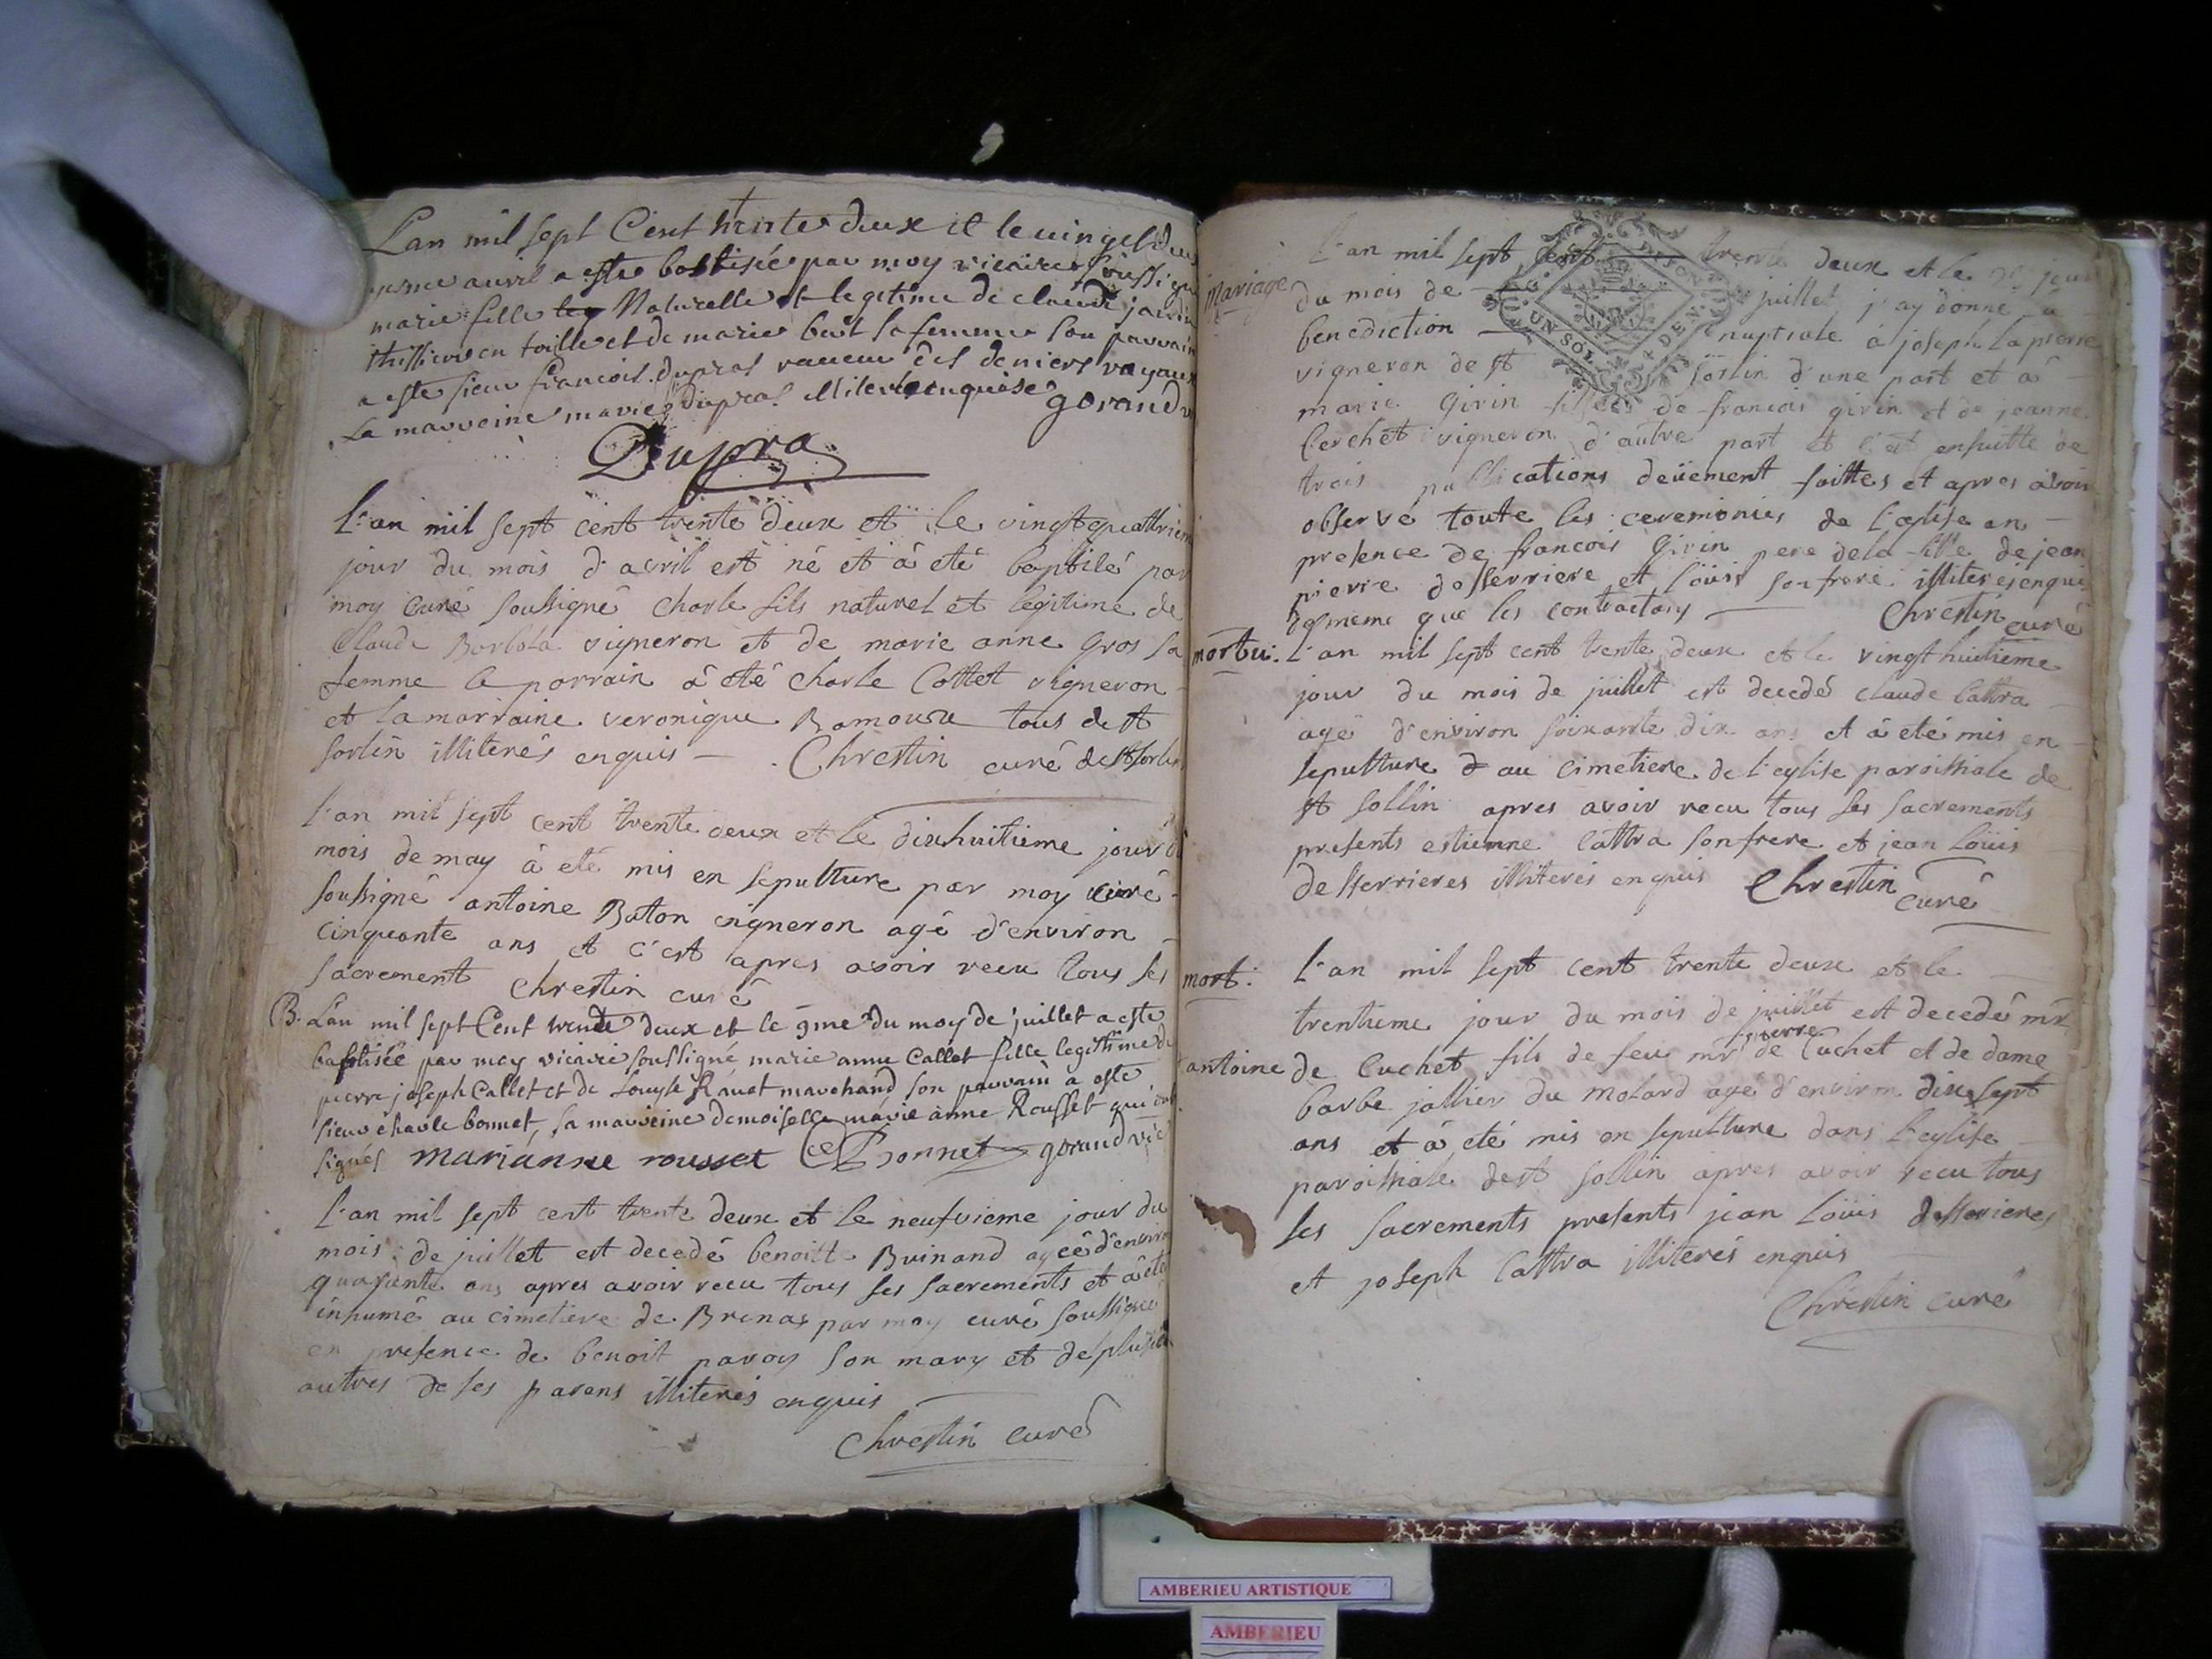 L'an mil sept Cent trente deux et le vingt deux
avril a este bastisée par moy vicaire soussigné
marie fille Naturelle et legitime de claude
thissieur en toille et de marie sa femme son parrain
a este sieur francois dupras des deniers royaux
La marreine marie dupras illiterée enquise gorand
Dupra
L'an mil sept cent trente deux et le vingt quattriem
jour du mois d'avril est né et à eté baptisé par
moy curé soussigné charle fils naturel et legitime de
Claude vigneron et de marie anne gros sa
femme le parrain à eté charle Cottet vigneron
et la marraine veronique Ramousse tous de st
sorlin illiterés enquis - Chrestin curé de st sorlin
L'an mil sept cent trente deux et le dixhuitieme jour du
mois de may à eté mis en sepulture par moy curé
soussigné antoine Baton vigneron agé d'environ
cinquante ans et c'est apres avoir recu tous ses
sacrement Chrestin curé
B. L'an mil sept Cent trente deux et le 9me du moy de juillet a este
baptisée par moy vicaire soussigné marie anne Callet fille legittime de
pierre joseph Callet et de Louyse Ravet marchand son parrain a este
sieur charle bonnet, sa marreine demoiselle marie anne Rousset qui ont
signés marianne rousset Bonnet gorand vic
L'an mil sept cent trente deux et le neufvieme jour du
mois de juillet est decedé benoitte Buinand agée d'environ
quarante ans apres avoir recu tous ses sacrements et à eté
inhumé au cimetiere de Brenas par moy curé soussigné
en presence de benoit paroy son mary et de plusieurs
autres de ses parens illiterés enquis
Chrestin curé
L'an mil sept cent trente deux et le jour
Mariage du mois de juillet j'ay donné la
benediction nuptiale à joseph Lapierre
vigneron de st sorlin d'une part et à
marie Girin fille de francois girin et de jeanne
Cerchet vigneron d'autre part et c'est ensuitte de
trois publications deüement faittes et apres avoir
observé toute les ceremonies de l'eglise en
presence de francois Girin pere de la fille de jean
pierre desserriere et Loüis son frere illiteres enquis
de meme que les contractans Chrestin curé
mortu. L'an mil sept cent trente deux et le vingt huitieme
jour du mois de juillet est decedé claude Cattra
agé d'environ soixante dix ans et à eté mis en
sepulture au cimetiere de l'eglise paroissiale de
st sollin apres avoir recu tous ses sacrements
presents estienne Cattra son frere et jean Loüis
desserrieres illiterés enquis Chrestin curé
mort. L'an mil sept cent trente deux et le
trentieme jour du mois de juillet est decedé mr
antoine de Cuchet fils de feu mr pierre de Cuchet et de dame
barbe jallier du Molard agé d'environ dix sept
ans et à eté mis en sepulture dans l'eglise
paroissiale de st sollin apres avoir recu tous
ses sacrements presents jean Loüis desserrieres
et joseph Cattra illiterés enquis
Chrestin curé
UN SOL
DE
AMBERIEU ARTISTIQUE
AMBERIEU